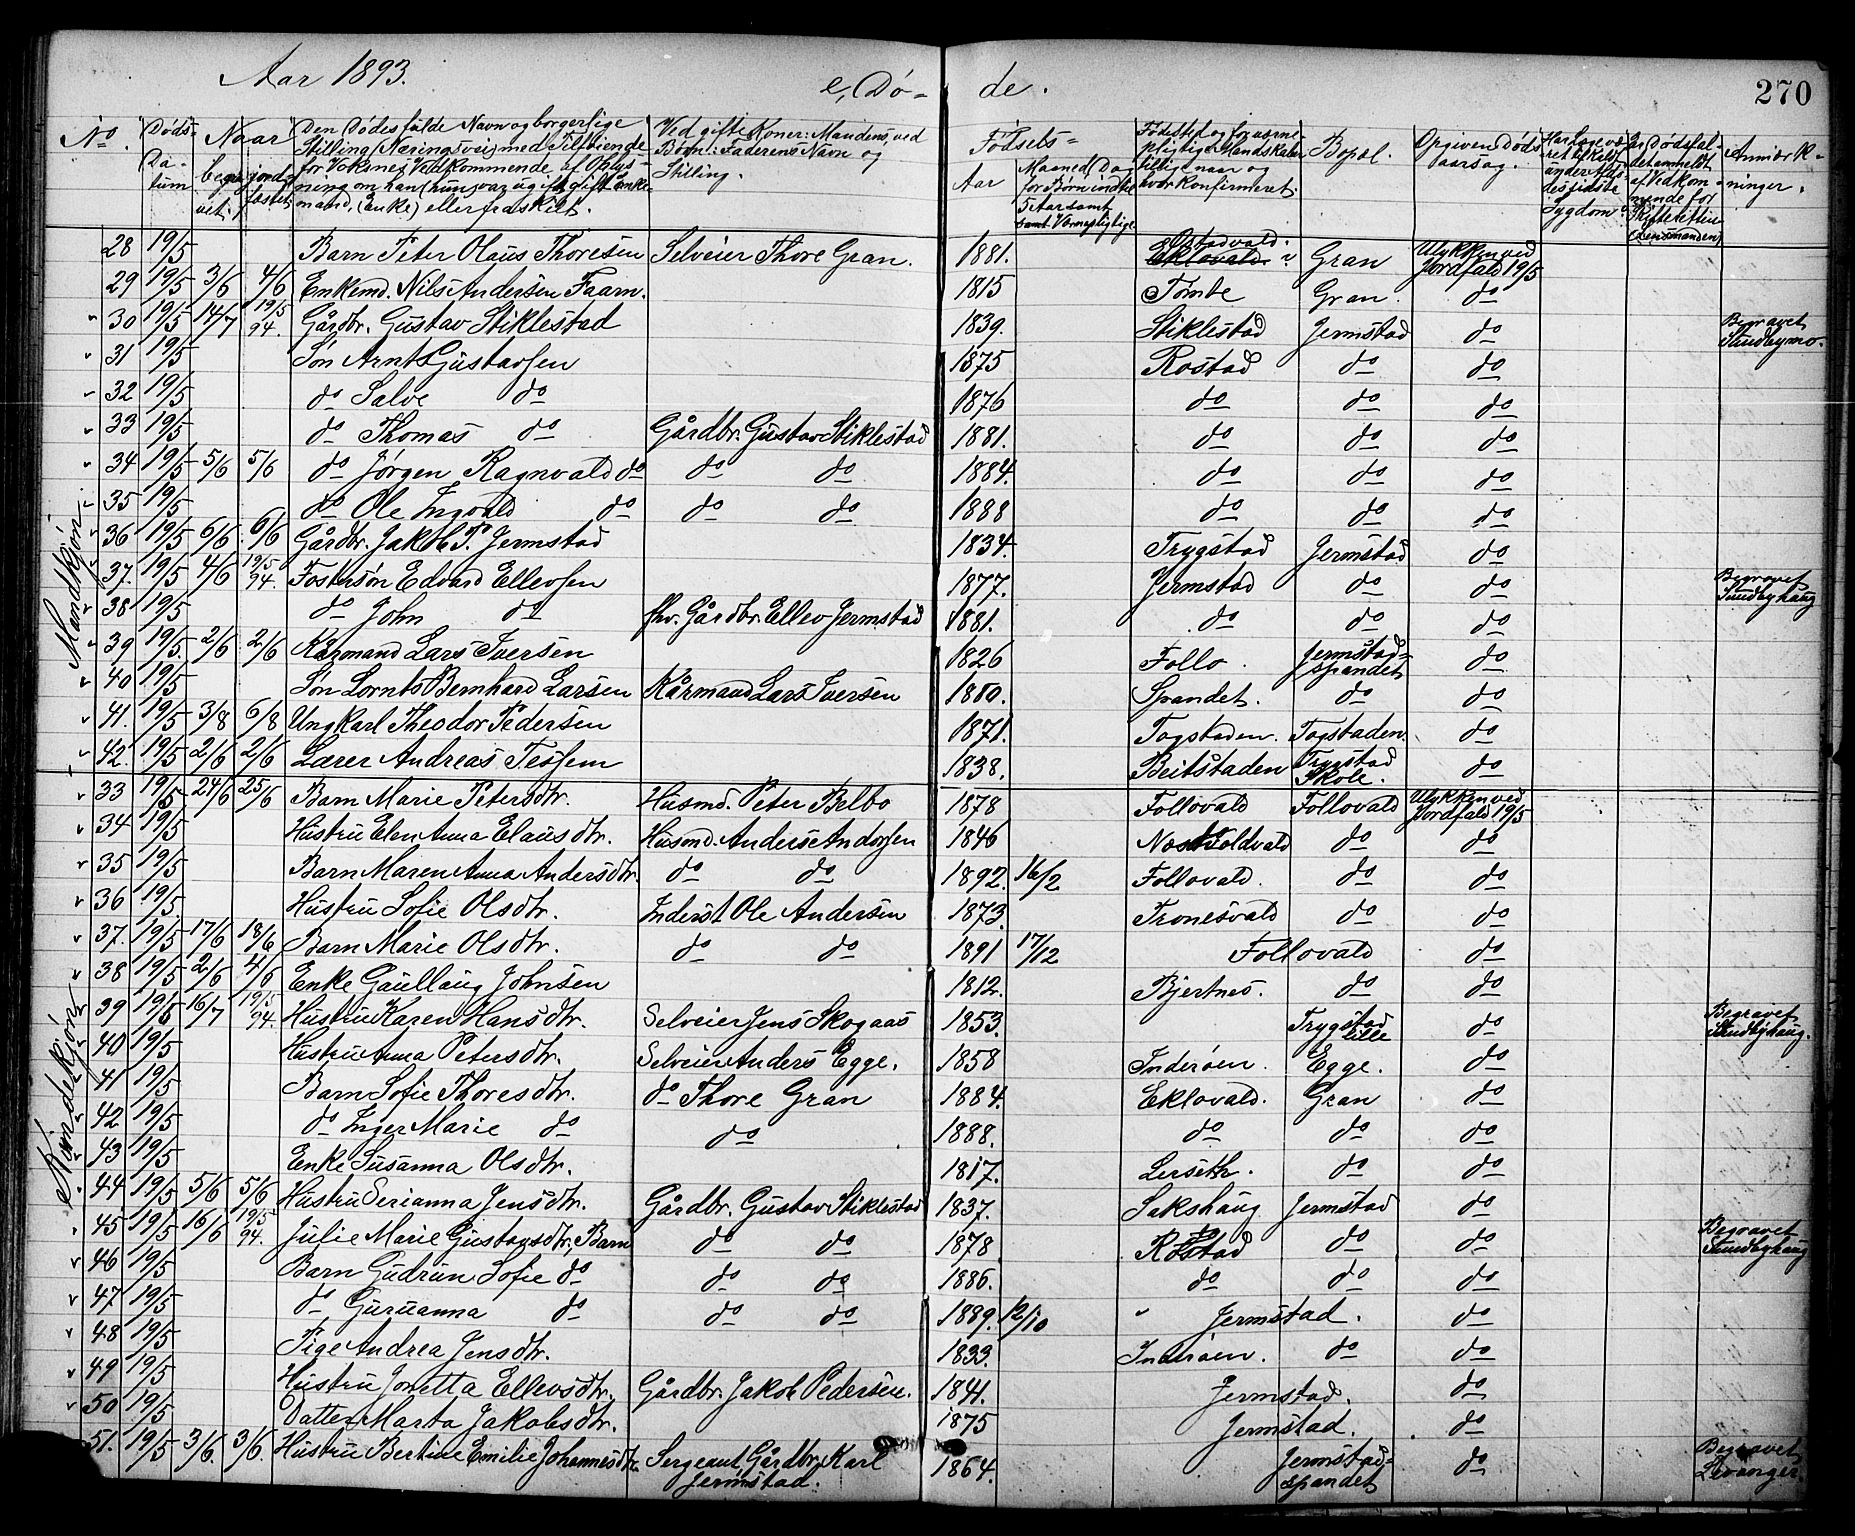 Aar 1893.
e, Dø-
de.
270
No.
Døds-
Da-
tum
Naar
begra-
vet.
jord-
fæstet
Den Dødes fulde Navn og borgerlige
Stilling (Næringsvei) med Tilføiende
for Voksnes Vedkommende af Oplys-
ning om han (hun) var ugift, gift, Enke-
mand, (Enke) eller fraskilt.
Ved gifte Koner: Mandens, ved
Børn: Faderens Navn og
Stilling.
Fødsels-
Aar
Maaned, Dag
for Børn indtil
samt Vernepligtige
Fødested og for værne-
pligtige Mandskaber
tillige naar og
hvor konfirmeret.
Bopæl.
Opgiven Døds-
aarsag.
Har Læge væ-
ret tilkaldt
under Afdø-
des sidste
Sygdom?
Er Dødsfal-
det anmeldt
af Vedkom-
mende for
Skifteretten
(Lensmanden)
Anmærk-
ninger.
Mandkjøn.
28 19/5 Barn Peter Olaus Thoresen Selveier Thore Gran. 1881. Østadvald. Eklovald Gran Ulykken ved Jordfald 19/5
29 19/5 3/6 4/6 Enkemd. Nils Andersen Faarn. 1815 Tømte Gran. do
30 19/5 14/7 19/5 94. Gårdbr. Gustav Stiklestad 1839. Stiklestad Jermstad do Begravet Sundbymo.
31 19/5 Søn Arnt Gustavsen 1875 Rostad do do
32 19/5 do Salve do 1876 do do do
33 19/5 do Thomas do Gårdbr. Gustav Stiklestad 1881. do do do
34 19/5 5/6 5/6 do Jørgen Ragnvald do do do 1884. do do do
35 19/5 do Ole Ingvald do do do 1888 do do do
36 19/5 6/6 6/6 Gårdbr. Jakob P. Jermstad 1834 Trygstad Jermstad do
37. 19/5 4/6 19/5 94. Fostersøn Edvard Ellevsen 1877. Jermstad do do Begravet Sundbyhaug
38 19/5 do John do fhv. Gårdbr. Ellev Jermstad 1881. do do do
39 19/5 2/6 2/6 Kårmand Lars Iversen 1826 Follo. Jermstad-spandet do
40 19/5 Søn Lornts Bernhard Larsen Kårmand Lars Iversen 1880. Spandet. do do
41. 19/5 3/8 6/8 Ungkarl Theodor Pedersen 1871. Togstaden. Togstaden. do
42. 19/5 2/6 2/6 Lærer Andreas Tessem 1838. Beitstaden Trygstad Skole. do
Kvindekjøn.
33 19/5 24/6 25/6 Barn Marie Petersdtr. Husmd. Peter Belbo 1878 Follovald Follovald Ulykken ved Jordfald 19/5
34 19/5 Hustru Elen Anna Elausdtr. Husmd. Anders Andersen 1846 do do
35 19/5 Barn Maren Anna Andersdtr. do do 1892. 16/2 Follovald. do do
36 19/5 Hustru Sofie Olsdtr. Inderst Ole Andersen 1873. Tronesvald do do
37. 19/5 17/6 18/6 Barn Marie Olsdtr. do do 1891 17/12 Follovald do
38 19/5 2/6 4/6 Enke Gaullaug Johnsen 1812. Bjertnes. do do
39 19/5 16/7 19/5 94. Hustru Karen Hansdtr. Selveier Jens Skogaas 1853. Trygstad lille do Begravet Sundbyhaug.
40 19/5 Hustru Anna Petersdtr. Selveier Anders Egge. 1858 Inderøen. Egge. do
41 19/5 Barn Sofie Thoresdtr. do Thore Gran 1884. Eklovald. Gran do
42 19/5 do Inger Marie do do 1888. do do do
43 19/5 Enke Susanna Olsdtr. 1817. Lerseth. do do
44 19/5 5/6 5/6 Hustru Serianna Jensdtr. Gårdbr. Gustav Stiklestad 1837. Sakshaug Jermstad do
45 19/5 16/6 19/5 94. Julie Marie Gustavsdtr., Barn do do 1878. Rostad do do Begravet Sundbyhaug
46 19/5 Barn Gudrun Sofie do do do 1886. do do do
47 19/5 do Guruanna do do do 1889. 12/10 " Jermstad. do
48 19/5 Pige Andrea Jensdtr. 1833. Inderøen. do do
49 19/5 Hustru Jonetta Ellevsdtr. Gårdbr. Jakob Pedersen. 1841. Jermstad. do
50 19/5 Datter Marta Jakobsdtr. 1875 Jermstad. do
51. 19/5 3/6. 3/6. Hustru Bertine Emilie Johannesdtr. Sergeant, Gårdbr. Karl Jermstad. 1864. Jermstad-spandet do Begravet Levanger